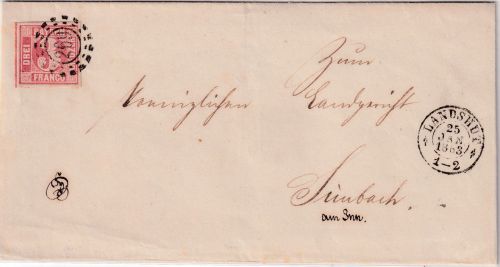 DREI
FRANCO
Zum
Koeniglichen Landgericht
LANDSHUT
25
JAN
1863
1-2
Simbach
am Inn.